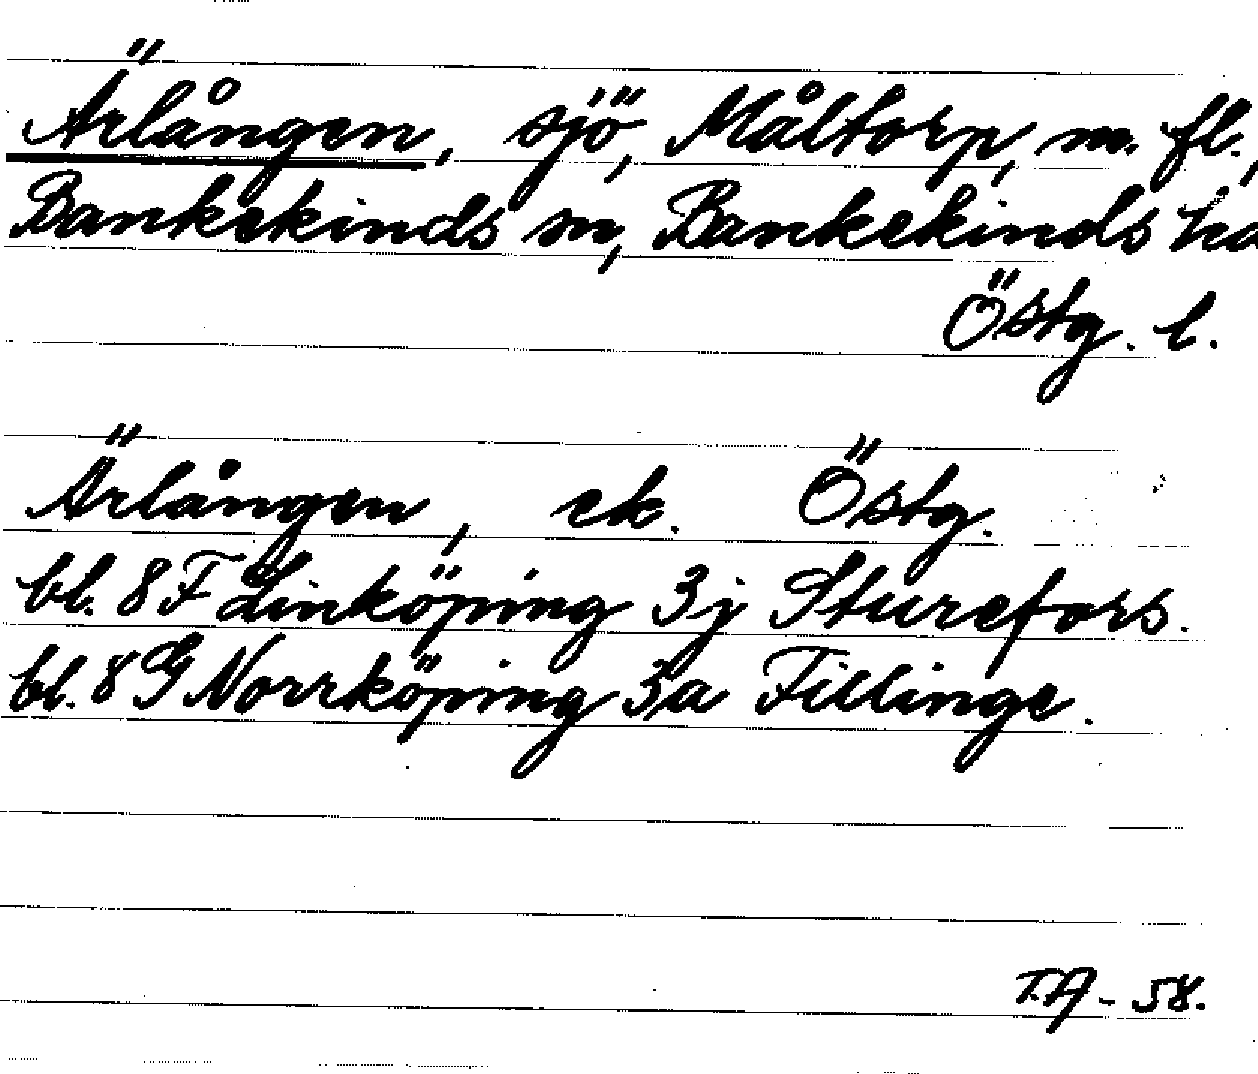 Ärlången, sjö, Måltorp, m. fl.,
Bankekinds sn, Bankekinds hd
Östg. l.
Ärlången, ek. Östg.
bl. 8 F Linköping 3j Sturefors.
bl. 8 G Norrköping 3a Fillinge.
T.A - 58.